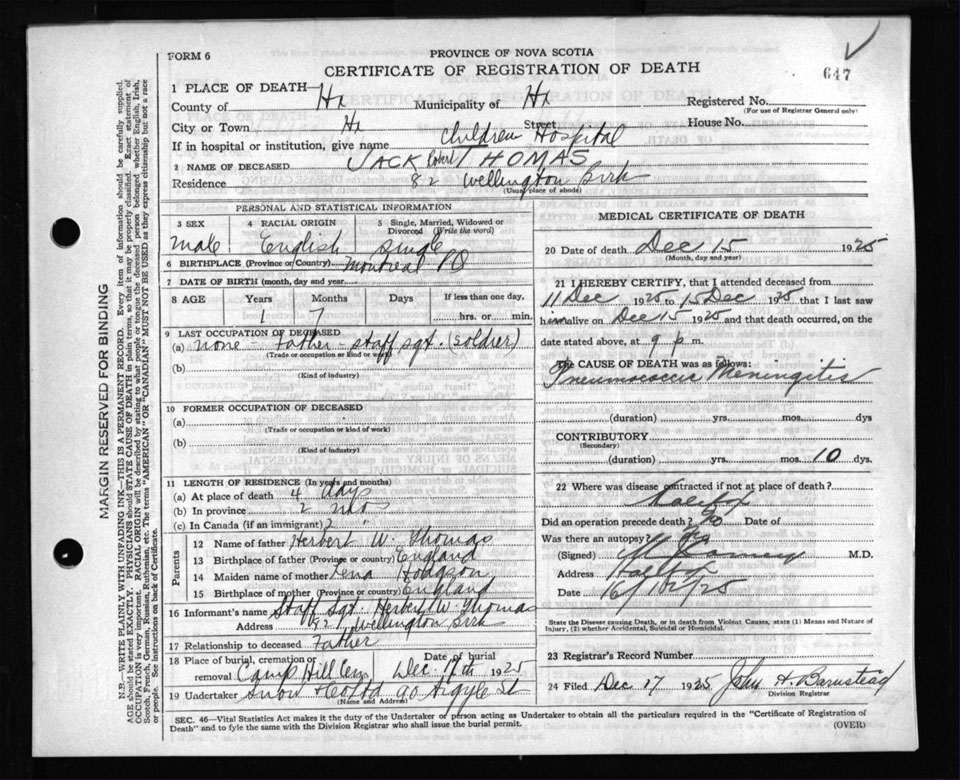 FORM 6
PROVINCE OF NOVA SCOTIA
CERTIFICATE OF REGISTRATION OF DEATH
647
1 PLACE OF DEATH—
County of Hx Municipality of Hx Registered No.
(For use of Registrar General only)
City or Town Hx Street House No.
If in hospital or institution, give name Children Hospital
2 NAME OF DECEASED JACK Robert THOMAS
Residence 82 Wellington Birk
(Usual place of abode)
PERSONAL AND STATISTICAL INFORMATION
3 SEX 4 RACIAL ORIGIN 5 Single, Married, Widowed or Divorced (Write the word)
Male English single
6 BIRTHPLACE (Province or Country) Montreal PQ
7 DATE OF BIRTH (month, day and year)
8 AGE Years Months Days If less than one day,
1 7 hrs. or min.
9 LAST OCCUPATION OF DECEASED
(a) none - Father - Staff sgt. (soldier)
(Trade or occupation or kind of work)
(b)
(Kind of industry)
10 FORMER OCCUPATION OF DECEASED
(a)
(Trade or occupation or kind of work)
(b)
(Kind of industry)
11 LENGTH OF RESIDENCE (In years and months)
(a) At place of death 4 days
(b) In province 2 mos
(c) In Canada (if an immigrant) 2 "
Parents
12 Name of father Herbert W. Thomas
13 Birthplace of father (Province or country) England
14 Maiden name of mother Lena Hodgson
15 Birthplace of mother (Province or country) England
16 Informant's name Staff Sgt. Herbert W. Thomas
Address 82, Wellington Birk
17 Relationship to deceased Father
18 Place of burial, cremation or removal Camp Hill Cem Date of burial Dec. 17th 1925
19 Undertaker Snow & Co Ltd 90 Argyle St
(Name and Address)
MEDICAL CERTIFICATE OF DEATH
20 Date of death Dec 15 1925
(Month, day and year)
21 I HEREBY CERTIFY, that I attended deceased from
11 Dec 1925 to 15 Dec 1925 that I last saw
him alive on Dec 15 1925 and that death occurred, on
date stated above, at 9 p.m.
The CAUSE OF DEATH was as follows:
Meningitis
(duration) yrs. mos. dys
CONTRIBUTORY
(Secondary)
(duration) yrs. mos. 10 dys.
22 Where was disease contracted if not at place of death?
Halifax
Did an operation precede death? No Date of
Was there an autopsy?
(Signed) M.D.
Address Halifax
Date 16/12/25
State the Disease causing Death, or in death from Violent Causes, state (1) Means and Nature of Injury, (2) whether Accidental, Suicidal or Homicidal.
23 Registrar's Record Number
24 Filed Dec 17 1925 John H. Barnstead
Division Registrar
SEC. 46—Vital Statistics Act makes it the duty of the Undertaker or person acting as Undertaker to obtain all the particulars required in the "Certificate of Registration of Death" and to fyle the same with the Division Registrar who shall issue the burial permit.
(OVER)
MARGIN RESERVED FOR BINDING
N.B.—WRITE PLAINLY WITH UNFADING INK—THIS IS A PERMANENT RECORD. Every item of information should be carefully supplied.
AGE should be stated EXACTLY. PHYSICIANS should STATE CAUSE OF DEATH in plain terms, so that it may be properly classified. Exact statement of
OCCUPATION is very important. RACIAL ORIGIN will be described by stating to what people or tongue the deceased person belonged whether English, Irish,
Scotch, French, German, Russian, Ruthenian, etc. The terms "AMERICAN" OR "CANADIAN" MUST NOT BE USED as they express citizenship but not a race
or people. See instructions on back of Certificate.